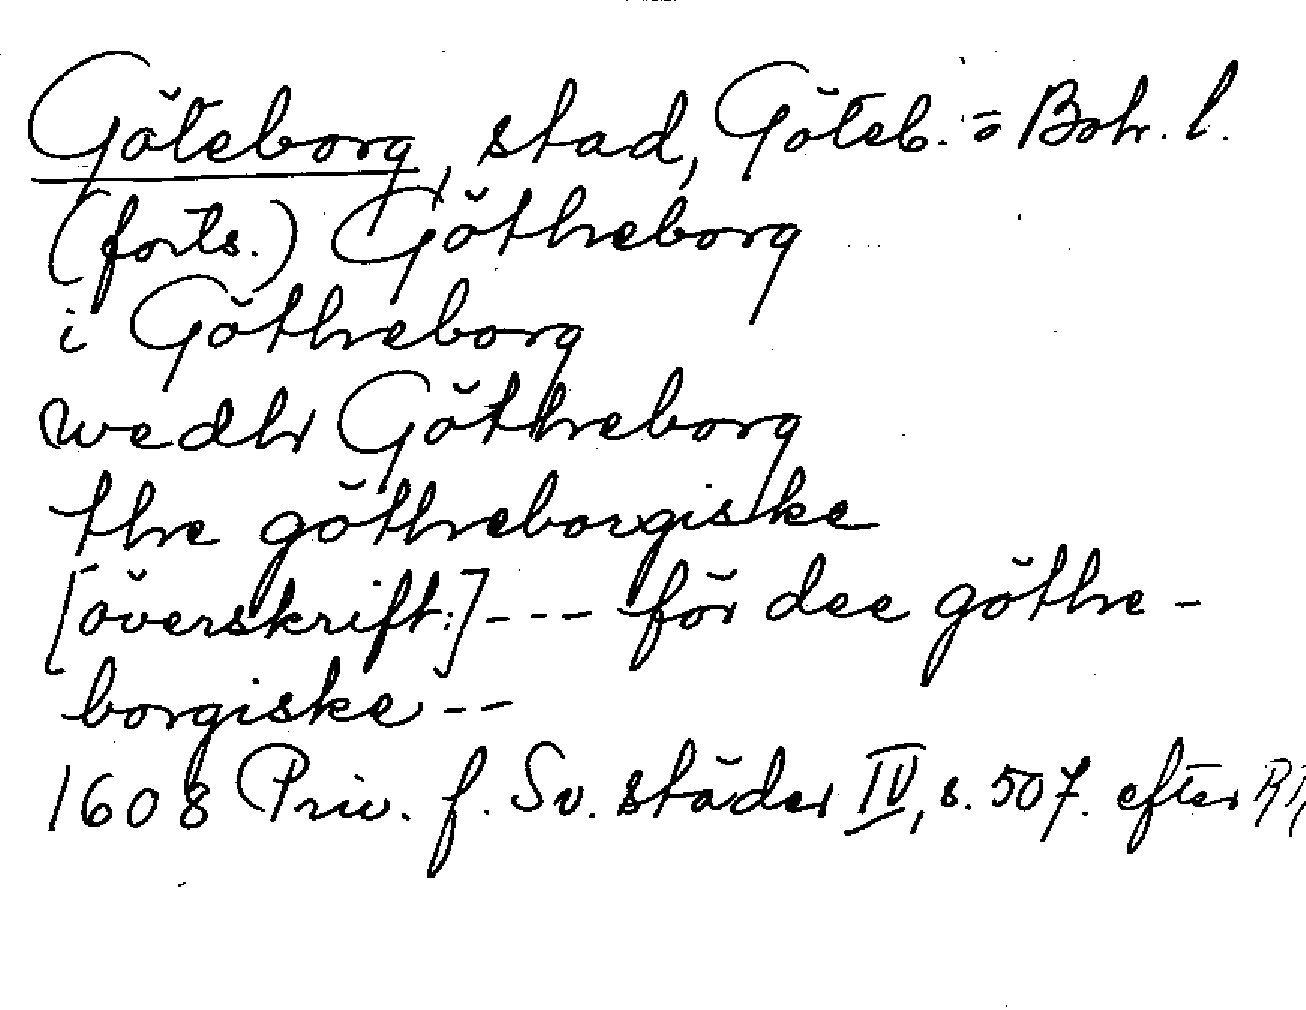 Göteborg, stad, Göteb. o Boh. l.
(forts.) Götheborg
i Götheborg
wedh Götheborg
the götheborgiske
[överskrift:] --- för dee göthe-
borgiske --
1608 Priv. f. Sv. städer IV, s. 507. efter RR